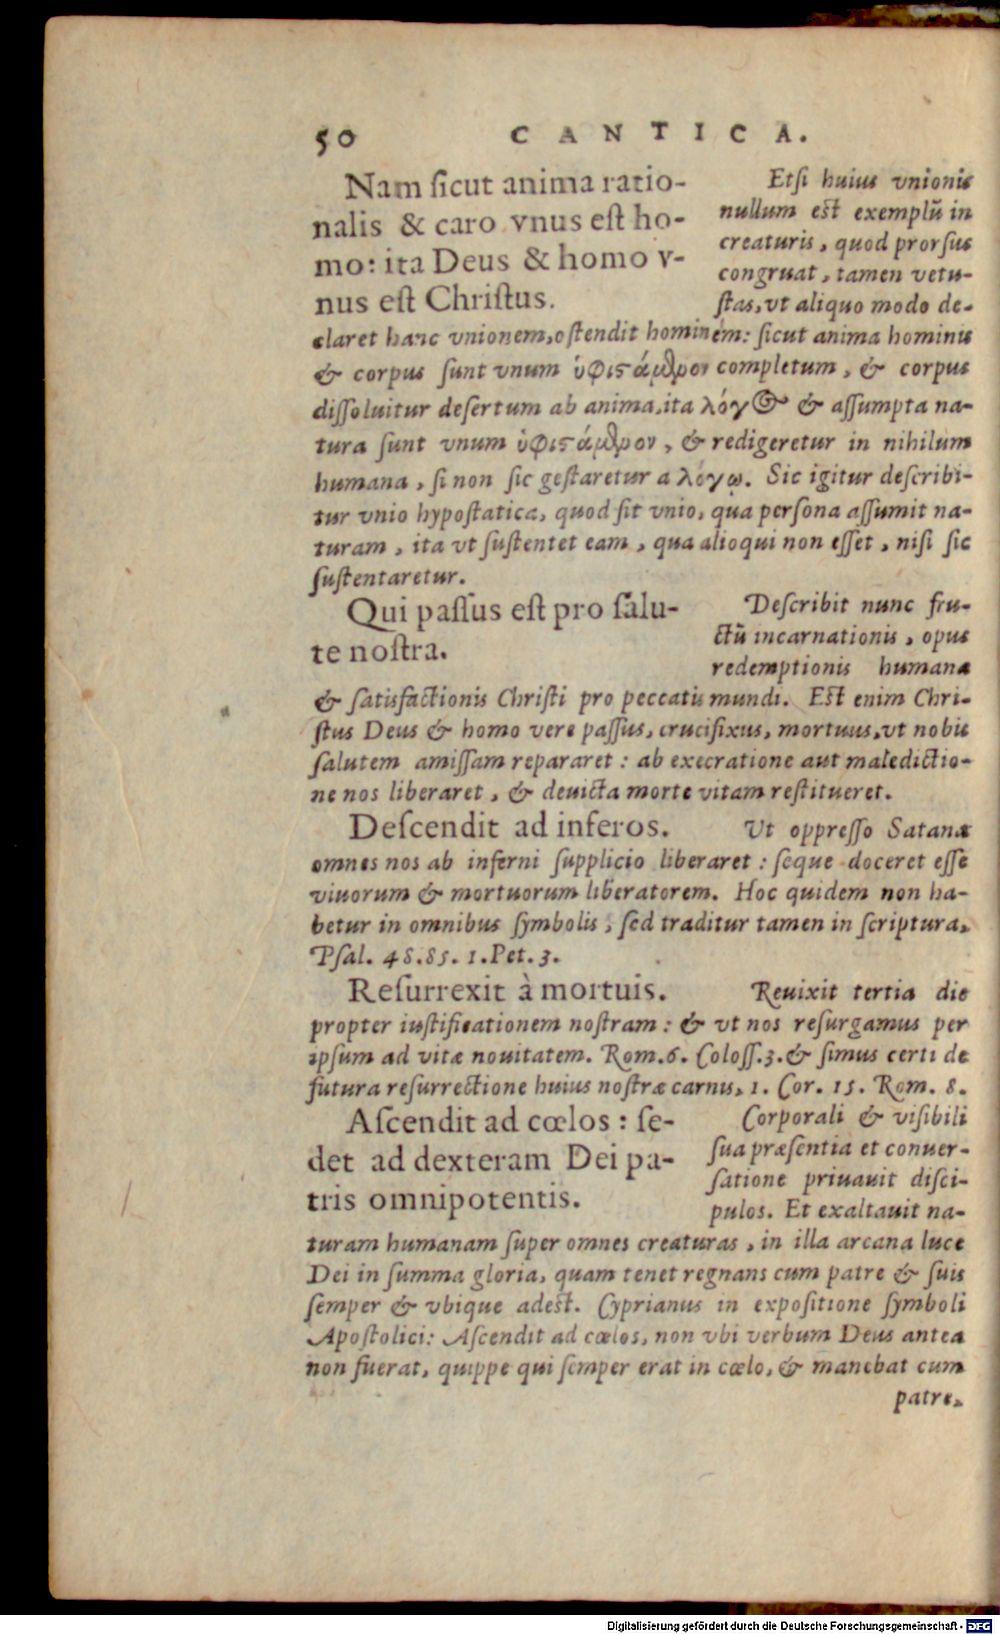 50 CANTICA.
Nam sicut anima ratio-
nalis & caro vnus est ho-
mo: ita Deus & homo v-
nus est Christus.
Etsi huius vnionis
nullum est exemplũ in
creaturis, quod prorsus
congruat, tamen vetu-
stas, vt aliquo modo de-
claret hanc vnionem, ostendit hominem: sicut anima hominis
& corpus sunt vnum ὑφιστάμενον completum, & corpus
dissoluitur desertum ab anima, ita λόγος & assumpta na-
tura sunt vnum ὑφιστάμενον, & redigeretur in nihilum
humana, si non sic gestaretur a λόγῳ. Sic igitur describi-
tur vnio hypostatica, quod sit vnio, qua persona assumit na-
turam, ita vt sustentet eam, qua alioqui non esset, nisi sic
sustentaretur.
Qui passus est pro salu-
te nostra.
Describit nunc fru-
ctũ incarnationis, opus
redemptionis humana
& satisfactionis Christi pro peccatis mundi. Est enim Chri-
stus Deus & homo vere passus, crucifixus, mortuus, vt nobis
salutem amissam repararet: ab execratione aut maledictio-
ne nos liberaret, & deuicta morte vitam restitueret.
Descendit ad inferos. Ut oppresso Satana
omnes nos ab inferni supplicio liberaret: seque doceret esse
viuorum & mortuorum liberatorem. Hoc quidem non ha-
betur in omnibus symbolis, sed traditur tamen in scriptura,
Psal. 48.85. 1.Pet.3.
Resurrexit à mortuis. Reuixit tertia die
propter iustificationem nostram: & vt nos resurgamus per
ipsum ad vitæ nouitatem. Rom.6. Coloss.3. & simus certi de
futura resurrectione huius nostræ carnis, 1. Cor. 15. Rom. 8.
Ascendit ad cœlos: se-
det ad dexteram Dei pa-
tris omnipotentis.
Corporali & visibili
sua præsentia et conuer-
satione priuauit disci-
pulos. Et exaltauit na-
turam humanam super omnes creaturas, in illa arcana luce
Dei in summa gloria, quam tenet regnans cum patre & suis
semper & vbique adest. Cyprianus in expositione symboli
Apostolici: Ascendit ad cœlos, non vbi verbum Deus antea
non fuerat, quippe qui semper erat in cœlo, & manebat cum
patre,
Digitalisierung gefördert durch die Deutsche Forschungsgemeinschaft - DFG